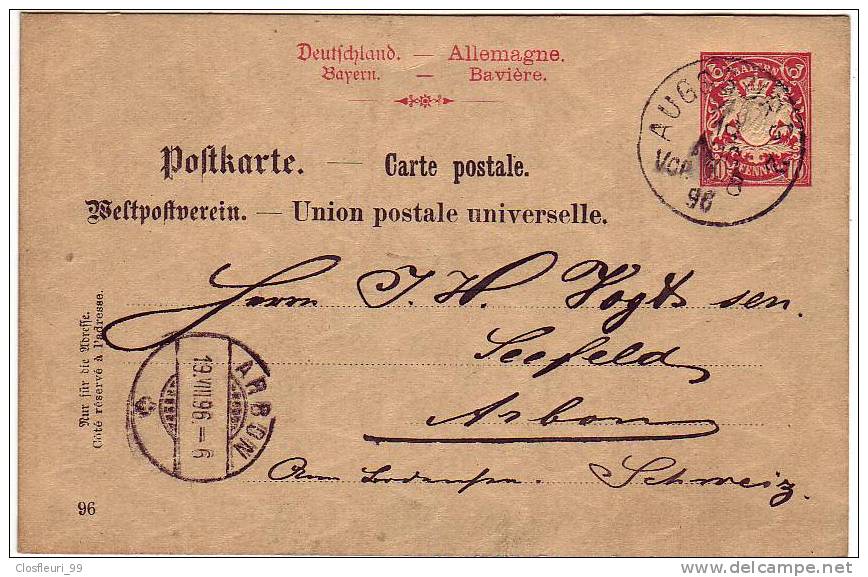 Deutschland. — Allemagne.
Bayern. — Bavière.
BAYERN
10 PFENNIG 10
AUGSBURG
VOR
96
Postkarte. — Carte postale.
Weltpostverein. — Union postale universelle.
Herrn J. H. Vogt sen.
Seefeld
Arbon
Am Bodensee. Schweiz.
Nur für die Adresse.
Côté réservé à l'adresse.
ARBON
19.VIII.96.—6
96
Closfleuri_99
delcampe.net